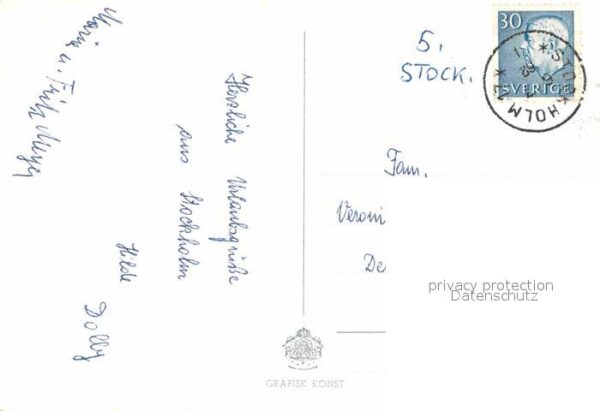 Herzliche Urlaubsgrüße
aus Stockholm
Hilde
Dolly
Maria u. Fritz Meyer
5.
STOCK.
30
SVERIGE
STOCKHOLM
Fam.
Veroni
De
privacy protection
Datenschutz
GRAFISK KONST